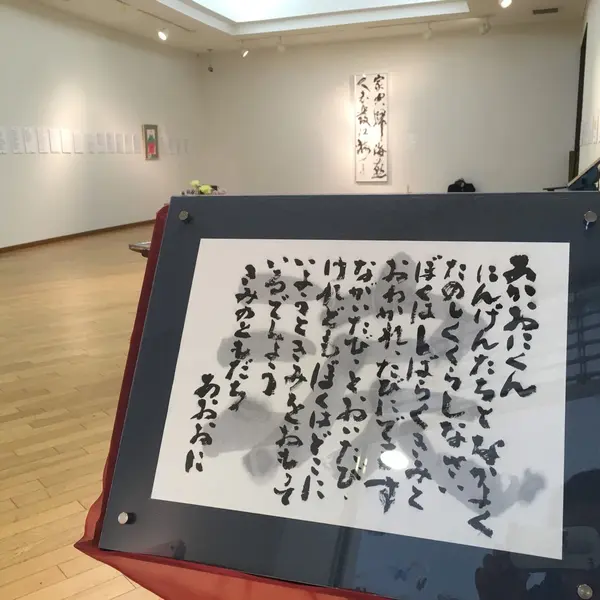 あかおにくん
にんげんたちとなかよく
たのしくくらしなさい、
ぼくはしばらくきみと
おわかれ、たびにでます
ながいたび、とおいたび、
けれどもぼくはどこに
いようときみをおもって
いるでしょう
きみのともだち
あおおに